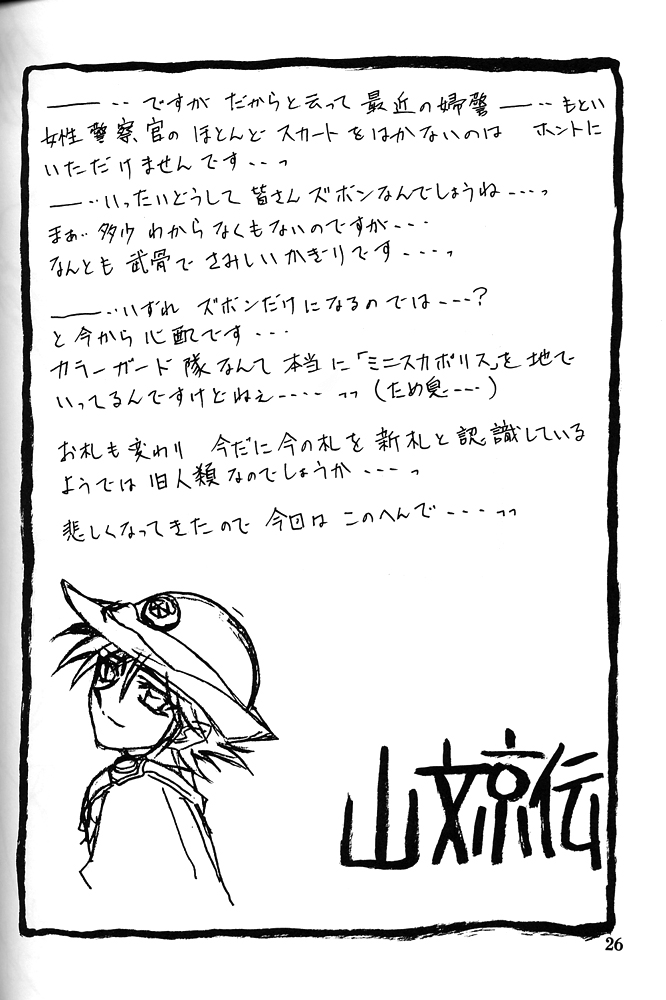 ――‥ですが だからと云って 最近の婦警――‥もとい
女性警察官の ほとんど スカートをはかないのは ホントに
いただけませんです‥っ
―‥いったいどうして 皆さん ズボンなんでしょうね---っ
まぁ‥多少 わからなくもないのですが---
なんとも 武骨で さみしいかぎりです---っ
――‥いずれ ズボンだけになるのでは---?
と今から心配です---
カラーガード隊なんて 本当に「ミニスカポリス」を 地で
いってるんですけどねぇ---- っっ (ため息---)
お札も変わり 今だに今の札を 新札と認識している
ようでは 旧人類なのでしょうか---っ
悲しくなってきたので 今回は このへんで---っっ
山文京伝
26